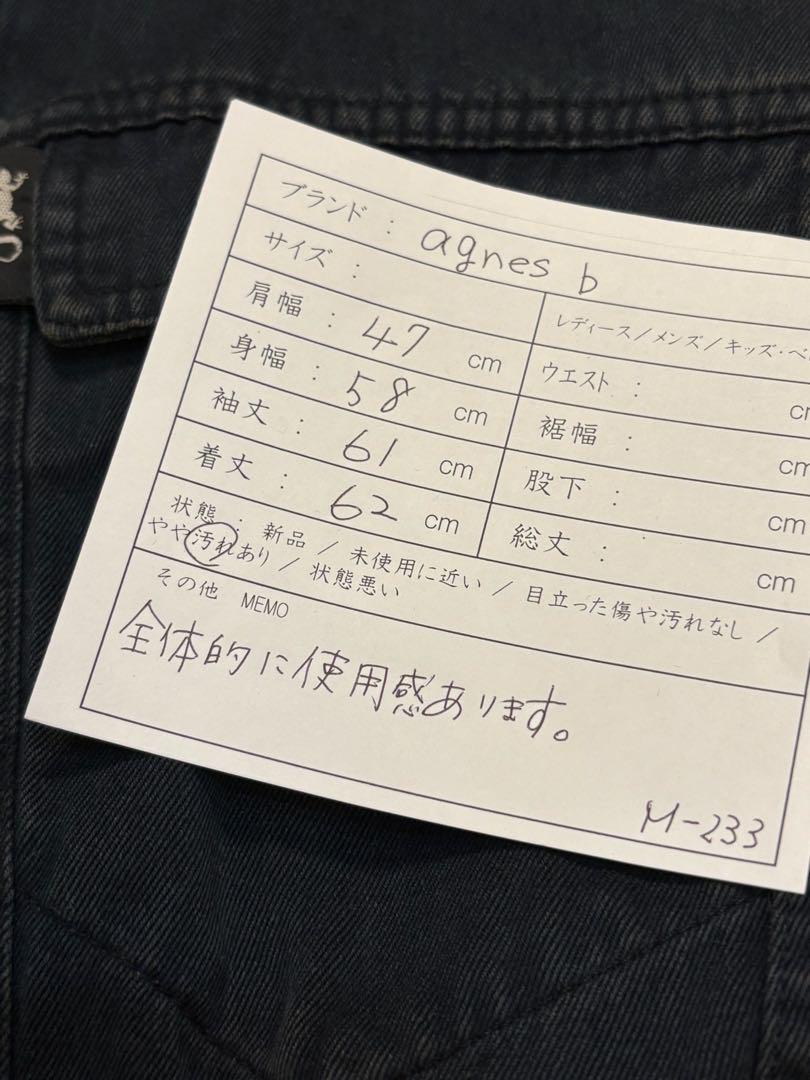 ブランド : agnes b
サイズ :
レディース/メンズ/キッズ・ベ
肩幅 : 47 cm
ウエスト : cm
身幅 : 58 cm
裾幅 : cm
袖丈 : 61 cm
股下 : cm
着丈 : 62 cm
総丈 : cm
状態 : 新品 / 未使用に近い / 目立った傷や汚れなし /
やや汚れあり / 状態悪い
その他 MEMO
全体的に使用感あります。
M-233